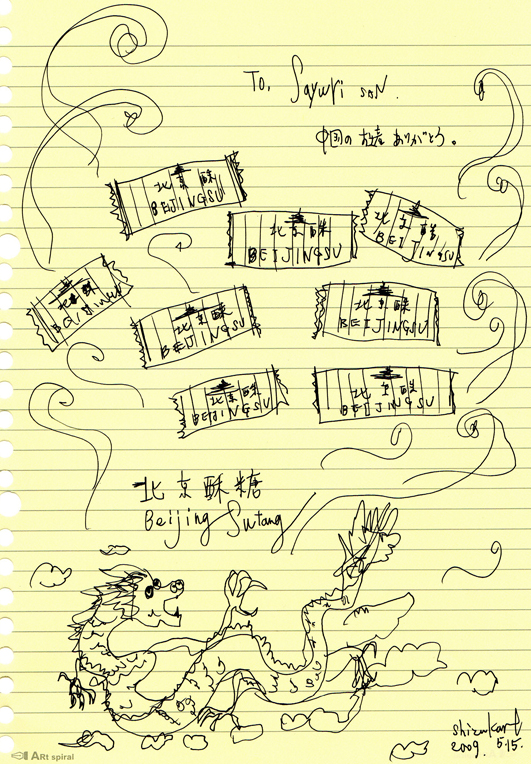 To, Sayuri san.
中国のお土産ありがとう。
北京酥
BEIJINGSU
北京酥
BEIJINGSU
北京酥
BEIJINGSU
北京酥
BEIJINGSU
北京酥
BEIJINGSU
北京酥
BEIJINGSU
北京酥
BEIJINGSU
北京酥
BEIJINGSU
北京酥糖
Beijing Sutang
2009. 5.15.
ARt spiral